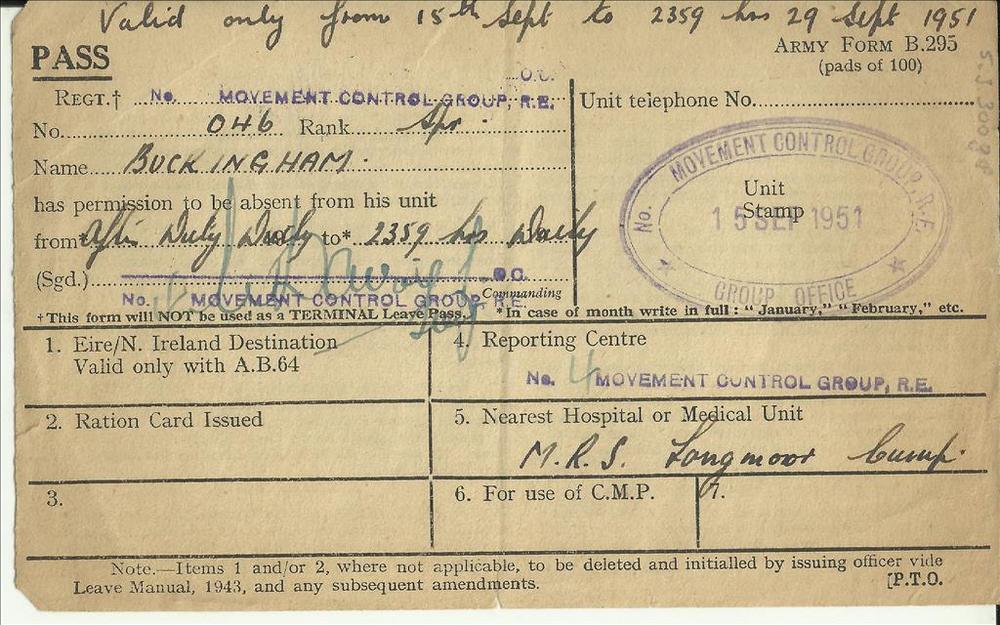 Valid only from 15th Sept to 2359 hrs 29 Sept 1951
PASS
ARMY FORM B.295
(pads of 100)
O.C.
REGT.† No. MOVEMENT CONTROL GROUP, R.E.
Unit telephone No.
No. 046 Rank Spr.
Name BUCKINGHAM.
has permission to be absent from his unit
from* After Duty Daily to* 2359 hrs Daily
(Sgd.) O.C.
Commanding
No. MOVEMENT CONTROL GROUP, R.E.
MOVEMENT CONTROL GROUP, R.E.
No.
Unit
Stamp
15 SEP 1951
GROUP OFFICE
†This form will NOT be used as a TERMINAL Leave Pass. *In case of month write in full: "January," "February," etc.
1. Eire/N. Ireland Destination
Valid only with A.B.64
4. Reporting Centre
No. 4 MOVEMENT CONTROL GROUP, R.E.
2. Ration Card Issued
5. Nearest Hospital or Medical Unit
M.R.S. Longmoor Camp.
3.
6. For use of C.M.P.
7.
Note.—Items 1 and/or 2, where not applicable, to be deleted and initialled by issuing officer vide
Leave Manual, 1943, and any subsequent amendments.
[P.T.O.